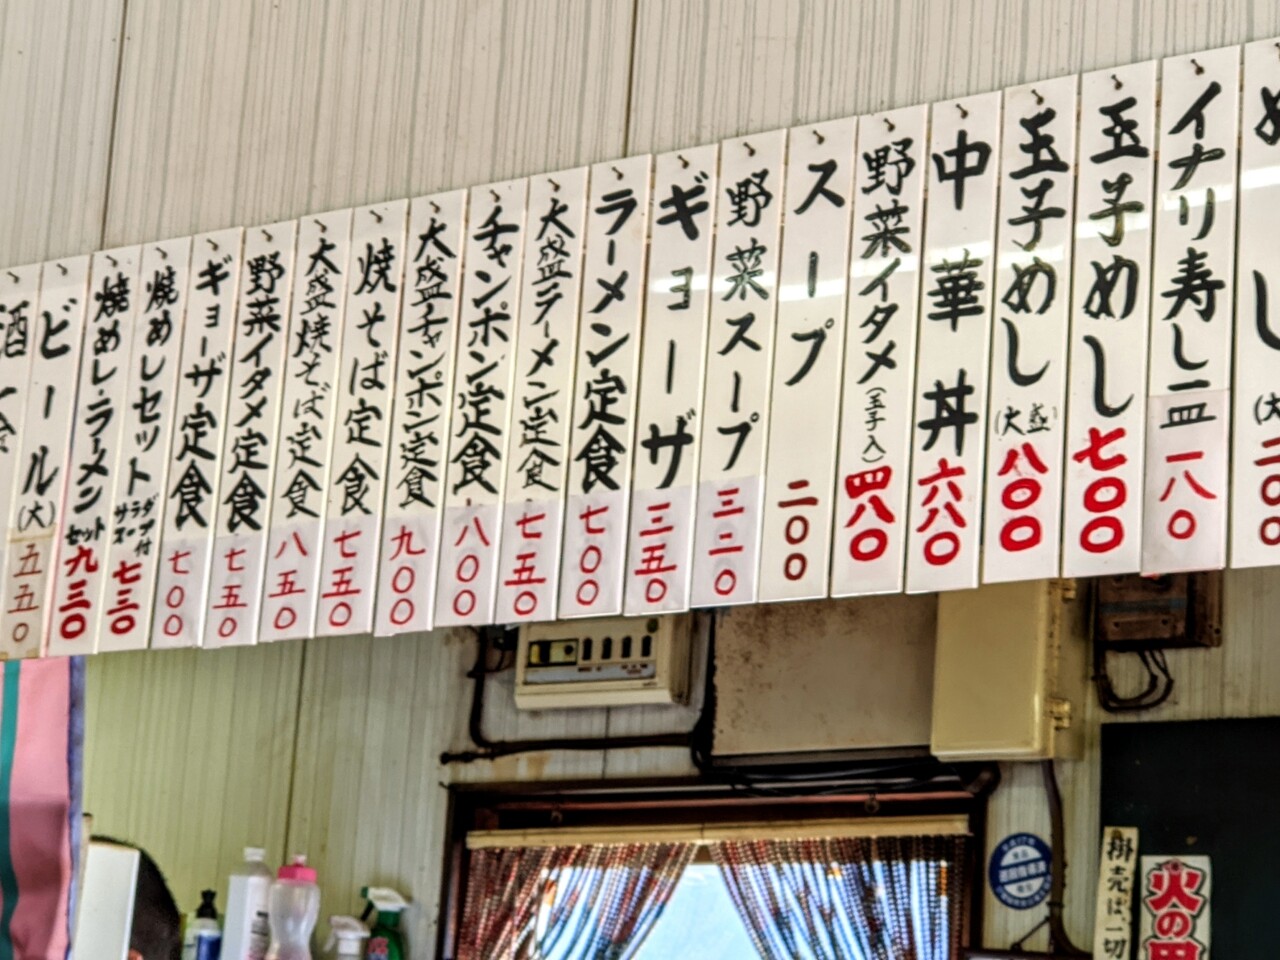 めし(大)二〇〇
イナリ寿し一皿 一八〇
玉子めし 七〇〇
玉子めし(大盛)八〇〇
中華丼 六八〇
野菜イタメ(玉子入)四八〇
スープ 二〇〇
野菜スープ 三二〇
ギョーザ 三五〇
ラーメン定食 七〇〇
大盛ラーメン定食 七五〇
チャンポン定食 八〇〇
大盛チャンポン定食 九〇〇
焼そば定食 七五〇
大盛焼そば定食 八五〇
野菜イタメ定食 七五〇
ギョーザ定食 七〇〇
焼めしセット サラダスープ付 七三〇
焼めし・ラーメンセット 九三〇
ビール(大)五五〇
酒一
掛売は、一切
火の